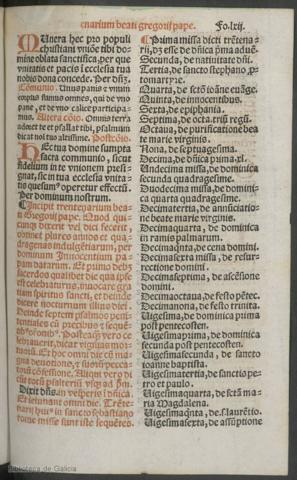 cnarium beati gregorij pape. Fo. lxij.
Munera hec pro populi
christiani vniõe tibi do-
mine oblata sanctifica, per que
vnitatis et pacis ecclesie tua
nobis dona concede. Per dñm.
Cõmunio. Unus panis et vnum
corpus sumus omnes, qui de vno
pane, et de vno calice participa-
mus. Altera cõio. Omnis terra
adoret te et psallat tibi, psalmum
dicat nol tuo altissime. Postcõio.
Hec tua domine sumpta
sacra communio, sicut
fidelium in te vnionem presi-
gnat, sic in tua ecclesia vnita-
tis quesumus operetur effectũ.
Per dominum nostrum.
Incipit trentenarium bea-
ti Gregorij pape. Quod qui-
cunque dixerit vel dici fecerit,
obtinet plures annos et qua-
dragenas indulgentiarum, per
dominum Innocentium pa-
pam datarum. Et primo debet
sacerdos qualibet die qua ipse
est celebraturus, inuocare gra-
tiam spiritus sancti, et deinde
dicere nocturnum illius diei.
Deinde septem psalmos peni-
tentiales cũ precibus et sequẽ-
Dixit dñs. in vesperis dñica
Et ieiunant omni die. Trẽte-
narij huius in sancto sebastiano
Prima missa dicti trẽtena-
rij, dz esse de dñica prima aduẽ.
Secunda, de natiuitate dñi.
Tertia, de sancto stephano, p-
Quarta, de sctõ ioãne euãge.
Quinta, de innocentibus.
Sexta, de epiphania.
Septima, de octa. triũ regũ.
Octaua, de purificatione bea
te marie virginis.
Nona, de septuagesima.
Decima, de dñica prima. xl.
Undecima missa, de dominica
secunda quadragesime.
Duodecima missa, de domini-
ca quarta quadragesime.
Decimatertia, de annũciatio-
ne beate marie virginis.
Decimaquarta, de dominica
in ramis palmarum.
Decimaqnta, de cena domini.
Decimasexta missa, de resur-
rectione domini.
Decimaseptima, de ascẽsione
domini.
Decimaoctaua, de festo pẽtec.
Decimanona, de festo trinita.
Uigesima, de dominica prima
post pentecosten.
Uigesimaprima, de dominica
secunda post pentecosten.
Uigesimasecunda, de sancto
ioanne baptista.
Uigesimatertia, de sanctis pe-
tro et paulo.
Uigesimaquarta, de sctã ma-
ria Magdalena.
Uigesimaquinta, de s. laurẽtio.
Uigesimasexta, de assũptione
Biblioteca de Galicia